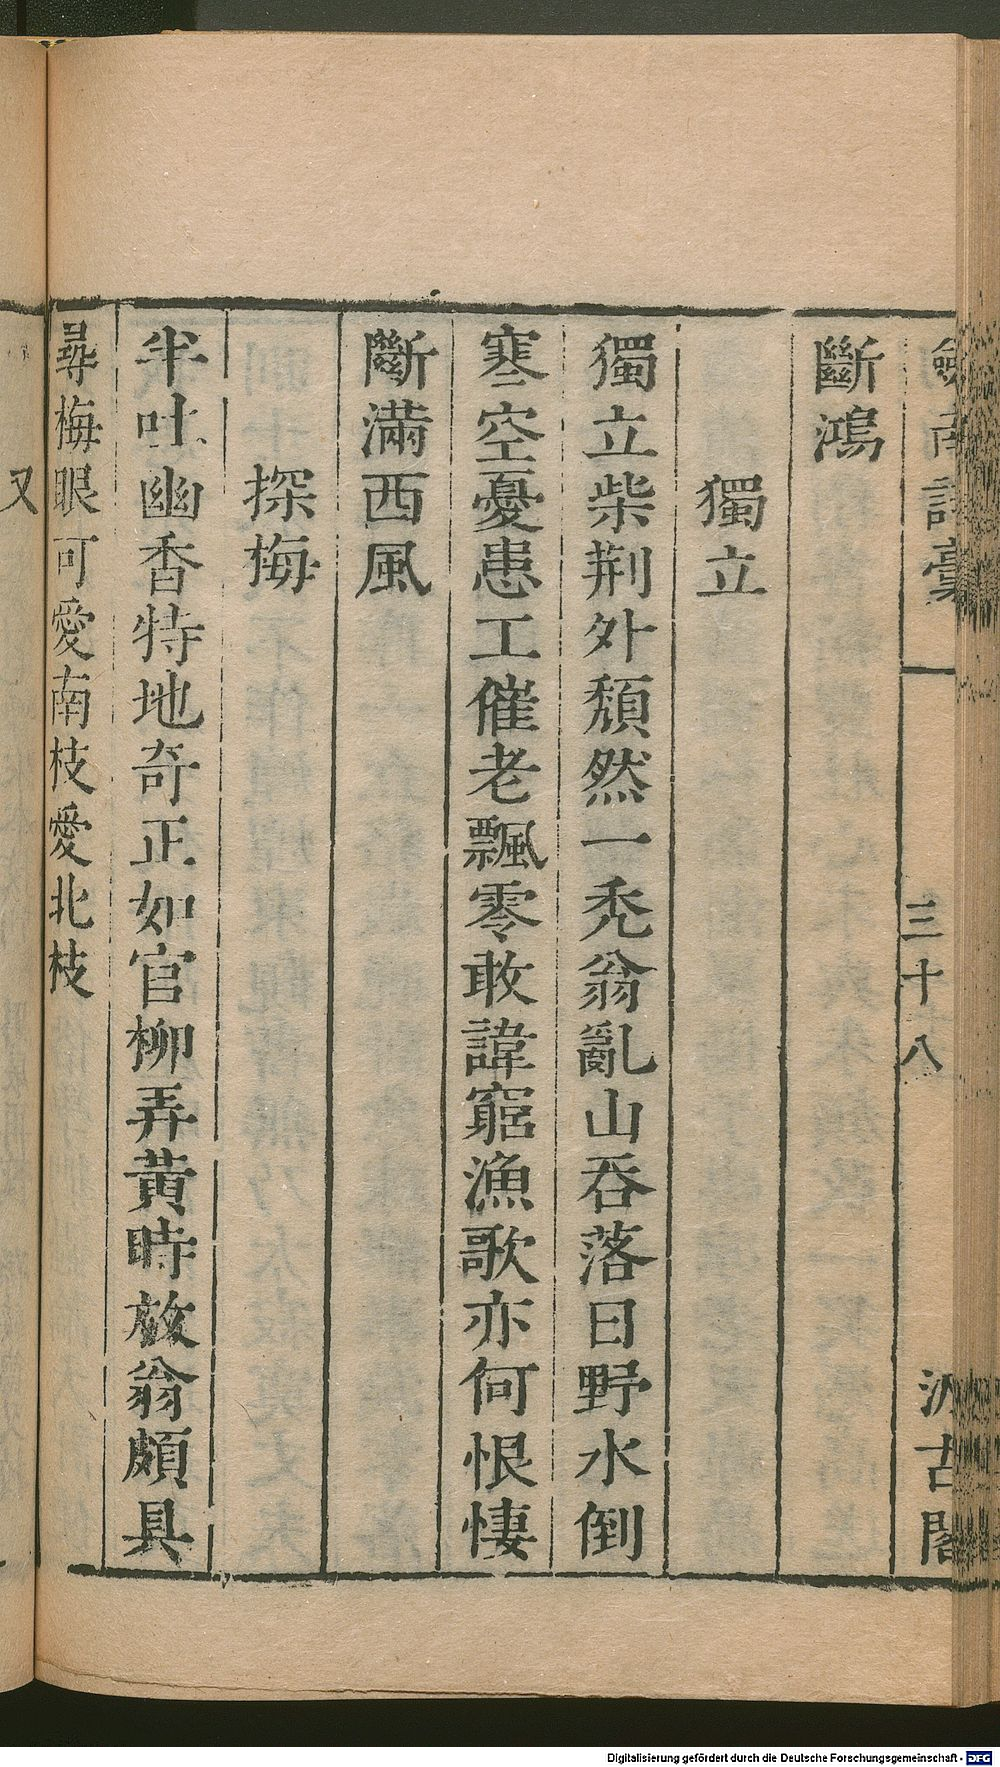 劍南詩藁 三十八 汲古閣
斷鴻
獨立
獨立柴荆外頹然一禿翁亂山吞落日野水倒
寒空憂患工催老飄零敢諱窮漁歌亦何恨悽
斷滿西風
探梅
半吐幽香特地奇正如官柳弄黃時放翁頗具
尋梅眼可愛南枝愛北枝
又
Digitalisierung gefördert durch die Deutsche Forschungsgemeinschaft - DFG